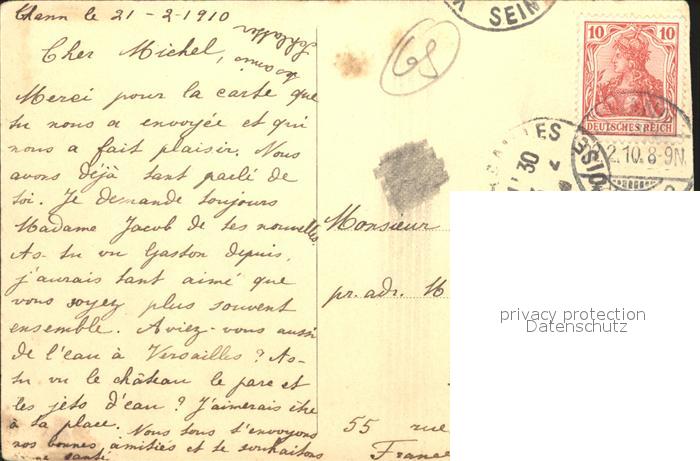 Thann le 21 - 2 - 1910
Cher Michel,
Merci pour la carte que
tu nous a envoyée et qui
nous a fait plaisir. Nous
avons déjà tant parlé de
toi. Je demande toujours
Madame Jacob de tes nouvelles.
As-tu vu Gaston depuis,
j'aurais tant aimé que
vous soyez plus souvent
ensemble. Aviez-vous aussi
de l'eau à Versailles ? As-
tu vu le château le parc et
les jets d'eau ? J'aimerais être
à ta place. Nous tous t'envoyons
nos bonnes amitiés et te souhaitons
santé
69
10 10
DEUTSCHES REICH
SEIN
OISE
30
2.10.8-9N.
Monsieur
pr. adr. M
55 rue
France
privacy protection
Datenschutz